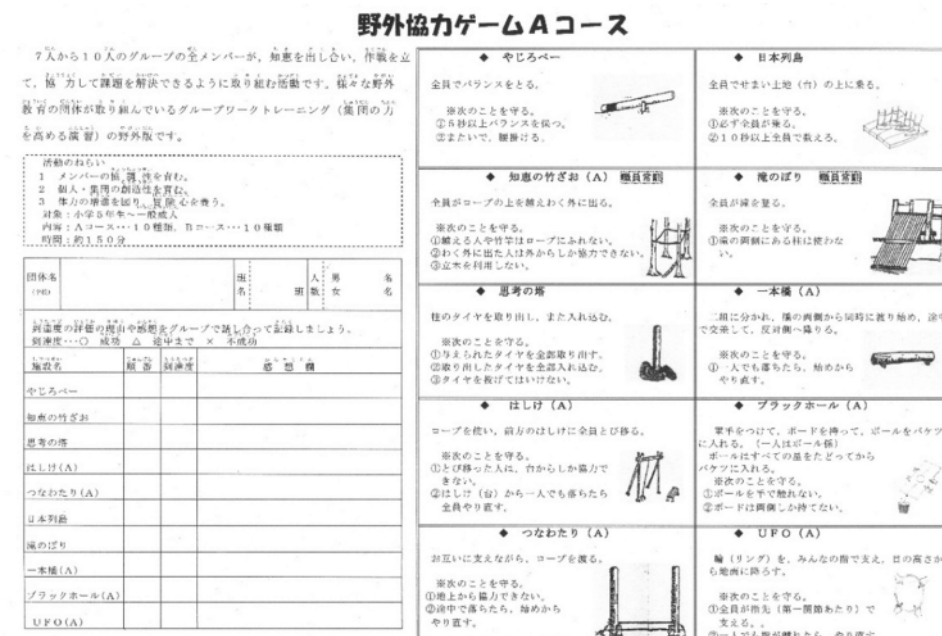 野外協力ゲームAコース
7人から10人のグループの全メンバーが，知恵を出し合い，作戦を立
て，協力して課題を解決できるように取り組む活動です。様々な野外
教育の団体が取り組んでいるグループワークトレーニング（集団の力
を高める演習）の野外版です。
活動のねらい
1 メンバーの協調性を育む。
2 個人・集団の創造性を育む。
3 体力の増進を図り，冒険心を養う。
対象：小学5年生〜一般成人
内容：Aコース・・・10種類，Bコース・・・10種類
時間：約150分
団体名 班名 班 人数 男 名 女 名
到達度の評価の理由や感想をグループで話し合って記録しましょう。
到達度・・・○ 成功 △ 途中まで × 不成功
施設名 順番 到達度 感想欄
やじろべー
知恵の竹ざお
思考の塔
はしけ(A)
つなわたり(A)
日本列島
滝のぼり
一本橋(A)
ブラックホール(A)
UFO(A)
◆ やじろべー
全員でバランスをとる。
※次のことを守る。
①5秒以上バランスを保つ。
②またいで、腰掛ける。
◆ 知恵の竹ざお（A） 職員常駐
全員がロープの上を越えわく外に出る。
※次のことを守る。
①越える人や竹竿はロープにふれない。
②わく外に出た人は外からしか協力できない。
③立木を利用しない。
◆ 思考の塔
柱のタイヤを取り出し，また入れ込む。
※次のことを守る。
①与えられたタイヤを全部取り出す。
②取り出したタイヤを全部入れ込む。
③タイヤを投げてはいけない。
◆ はしけ（A）
ロープを使い，前方のはしけに全員とび移る。
※次のことを守る。
①とび移った人は，台からしか協力で
きない。
②はしけ（台）から一人でも落ちたら
全員やり直す。
◆ つなわたり（A）
お互いに支えながら，ロープを渡る。
※次のことを守る。
①地上から協力できない。
②途中で落ちたら，始めから
やり直す。
◆ 日本列島
全員でせまい土地（台）の上に乗る。
※次のことを守る。
①必ず全員が乗る。
②10秒以上全員で数える。
◆ 滝のぼり 職員常駐
全員が滝を登る。
※次のことを守る。
①滝の両側にある柱は使わな
い。
◆ 一本橋（A）
二組に分かれ，橋の両側から同時に渡り始め，途中
で交差して，反対側へ降りる。
※次のことを守る。
①一人でも落ちたら，始めから
やり直す。
◆ ブラックホール（A）
軍手をつけて，ボードを持って，ボールをバケツ
に入れる。（一人はボール係）
ボールはすべての星をたどってから
バケツに入れる。
※次のことを守る。
①ボールを手で触れない。
②ボードは両側しか持てない。
◆ UFO（A）
輪（リング）を，みんなの指で支え，目の高さか
ら地面に降ろす。
※次のことを守る。
①全員が指先（第一関節あたり）で
支える。
②一人でも指が離れたら，やり直す